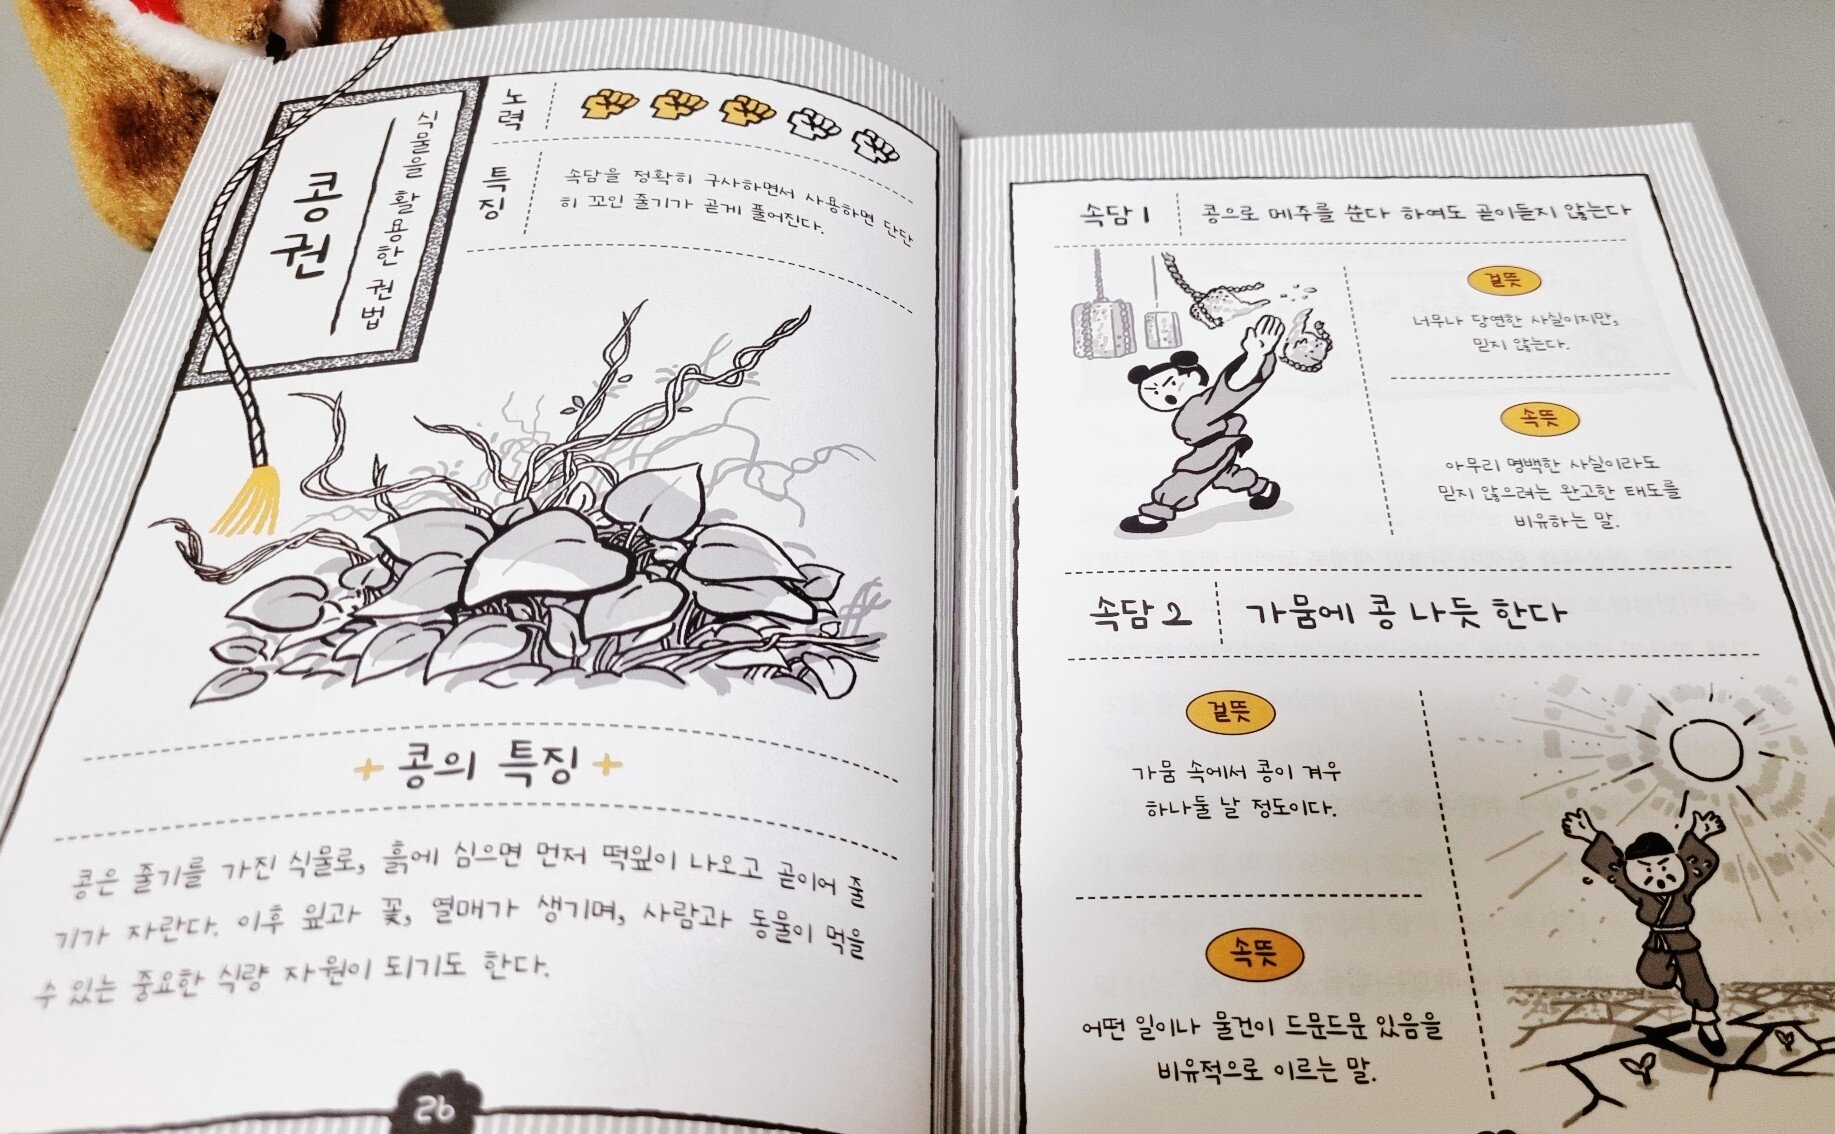 식물을 활용한 권법
콩권
노력
특징
속담을 정확히 구사하면서 사용하면 단단
히 꼬인 줄기가 곧게 풀어진다.
+ 콩의 특징 +
콩은 줄기를 가진 식물로, 흙에 심으면 먼저 떡잎이 나오고 곧이어 줄
기가 자란다. 이후 잎과 꽃, 열매가 생기며, 사람과 동물이 먹을
수 있는 중요한 식량 자원이 되기도 한다.
26
속담 1
콩으로 메주를 쑨다 하여도 곧이듣지 않는다
겉뜻
너무나 당연한 사실이지만,
믿지 않는다.
속뜻
아무리 명백한 사실이라도
믿지 않으려는 완고한 태도를
비유하는 말.
속담 2
가뭄에 콩 나듯 한다
겉뜻
가뭄 속에서 콩이 겨우
하나둘 날 정도이다.
속뜻
어떤 일이나 물건이 드문드문 있음을
비유적으로 이르는 말.